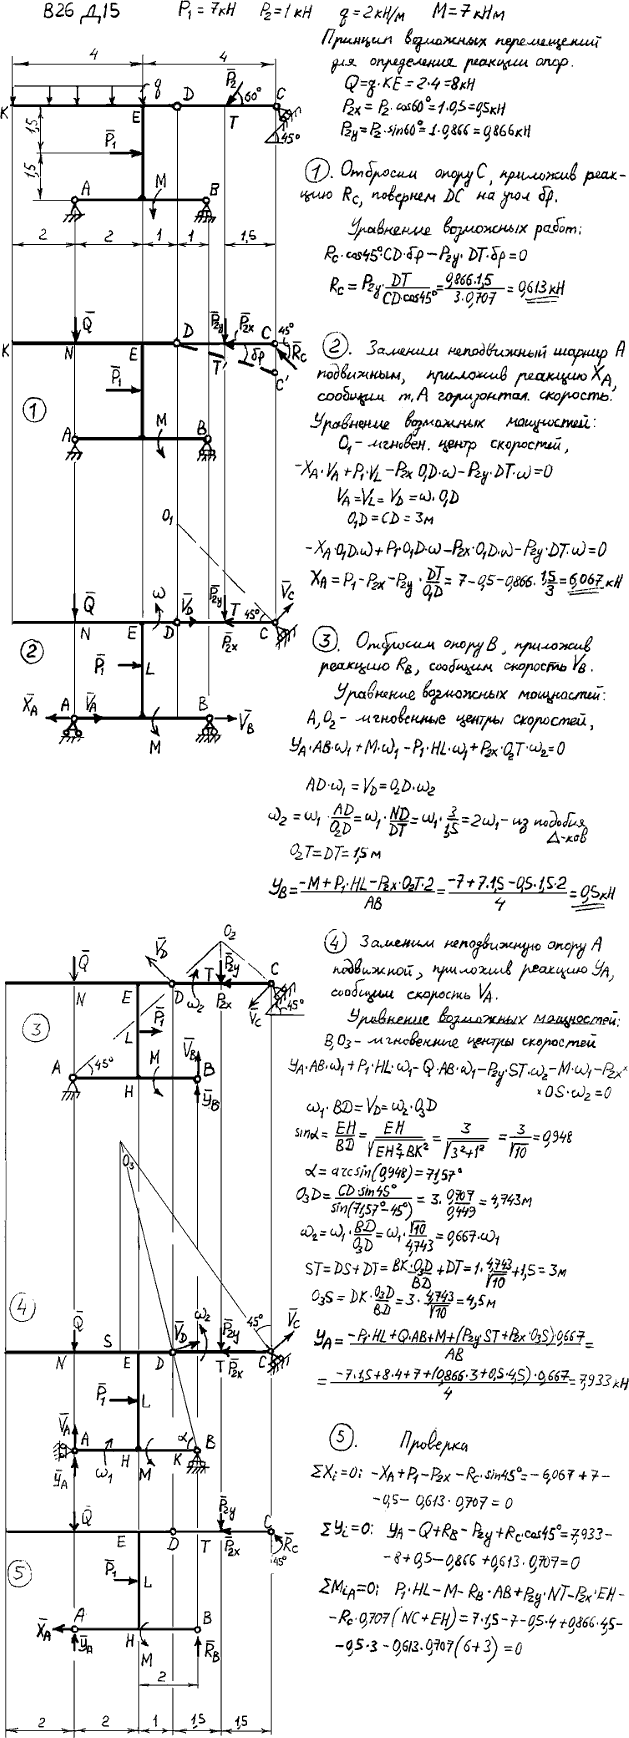 В26 Д15 P₁ = 7кН P₂=1кН q = 2кН/м M = 7кНм
Принцип возможных перемещений
для определения реакции опор.
Q = q·KE = 2·4 = 8кН
P₂x = P₂·cos60° = 1·0,5 = 0,5кН
P₂y = P₂·sin60° = 1·0,866 = 0,866кН
4 4
q̄ D P̄₂ 60° C
K E T 45°
1,5 P̄₁
1,5 A M B
2 2 1 1 1,5
① . Отбросим опору C, приложив реак-
цию Rc, повернем DC на угол δφ.
Уравнение возможных работ:
Rc·cos45°·CD·δφ − P₂y·DT·δφ = 0
Rc = P₂y· DT/(CD·cos45°) = 0,866·1,5/(3·0,707) = 0,613 кН
Q̄ D P̄₂y P̄₂x C 45°
K N E T' δφ R̄c
C'
P̄₁
① A M B
② . Заменим неподвижный шарнир A
подвижным, приложив реакцию XA,
сообщим т. A горизонтал. скорость.
Уравнение возможных мощностей:
O₁ - мгновен. центр скоростей,
−XA·VA + P₁·VL − P₂x·O₁D·ω − P₂y·DT·ω = 0
VA = VL = VD = ω·O₁D
O₁D = CD = 3м
−XA·O₁D·ω + P₁·O₁D·ω − P₂x·O₁D·ω − P₂y·DT·ω = 0
XA = P₁ − P₂x − P₂y· DT/O₁D = 7 − 0,5 − 0,866· 1,5/3 = 6,067 кН
O₁
Q̄ ω V̄D P̄₂y T 45° V̄c
N E D P̄₂x C
② P̄₁ L
X̄A A V̄A M B V̄B
③ . Отбросим опору B, приложив
реакцию RB, сообщим скорость VB.
Уравнение возможных мощностей:
A, O₂ - мгновенные центры скоростей,
YA·AB·ω₁ + M·ω₁ − P₁·HL·ω₁ + P₂x·O₂T·ω₂ = 0
AD·ω₁ = VD = O₂D·ω₂
ω₂ = ω₁· AD/O₂D = ω₁· ND/DT = ω₁· 3/1,5 = 2ω₁ - из подобия
Δ-ков
O₂T = DT = 1,5м
YB = (−M + P₁·HL − P₂x·O₂T·2)/AB = (−7 + 7·1,5 − 0,5·1,5·2)/4 = 0,5кН
V̄D O₂
Q̄ T P̄₂y C
N E D ω₂ P̄₂x V̄c 45°
③ L P̄₁
A 45° M V̄B B
H ȲB
④ Заменим неподвижную опору A
подвижной, приложив реакцию YA,
сообщим скорость VA.
Уравнение возможных мощностей:
B, O₃ - мгновенние центры скоростей
YA·AB·ω₁ + P₁·HL·ω₁ − Q·AB·ω₁ − P₂y·ST·ω₂ − M·ω₁ − P₂x×
×OS·ω₂ = 0
ω₁·BD = VD = ω₂·O₃D
sinα = EH/BD = EH/√(EH²+BK²) = 3/√(3²+1²) = 3/√10 = 0,948
α = arcsin(0,948) = 71,57°
O₃D = CD·sin45°/sin(71,57°−45°) = 3· 0,707/0,449 = 4,743м
ω₂ = ω₁· BD/O₃D = ω₁· √10/4,743 = 0,667·ω₁
ST = DS + DT = BK·O₃D/BD + DT = 1· 4,743/√10 + 1,5 = 3м
O₃S = DK· O₃D/BD = 3· 4,743/√10 = 4,5м
YA = (−P₁·HL + Q·AB + M + (P₂y·ST + P₂x·O₃S)·0,667)/AB =
= (−7·1,5 + 8·4 + 7 + (0,866·3 + 0,5·4,5)·0,667)/4 = 7,933 кН
O₃
④ Q̄ S V̄D ω₂ P̄₂y 45° V̄c
N E D T P̄₂x C
P̄₁ L
V̄A A α B
ȲA ω₁ H M K
⑤ . Проверка
ΣXi = 0: −XA + P₁ − P₂x − Rc·sin45° = −6,067 + 7 −
−0,5 − 0,613·0,707 = 0
ΣYi = 0: YA − Q + RB − P₂y + Rc·cos45° = 7,933 −
−8 + 0,5 − 0,866 + 0,613·0,707 = 0
ΣMiA = 0; P₁·HL − M − RB·AB + P₂y·NT − P₂x·EH −
−Rc·0,707(NC + EH) = 7·1,5 − 7 − 0,5·4 + 0,866·4,5 −
−0,5·3 − 0,613·0,707(6+3) = 0
Q̄ P̄₂y C
E D T P̄₂x R̄c
45°
⑤ P̄₁ L
X̄A A B
ȲA H M R̄B
2
2 2 1 1,5 1,5